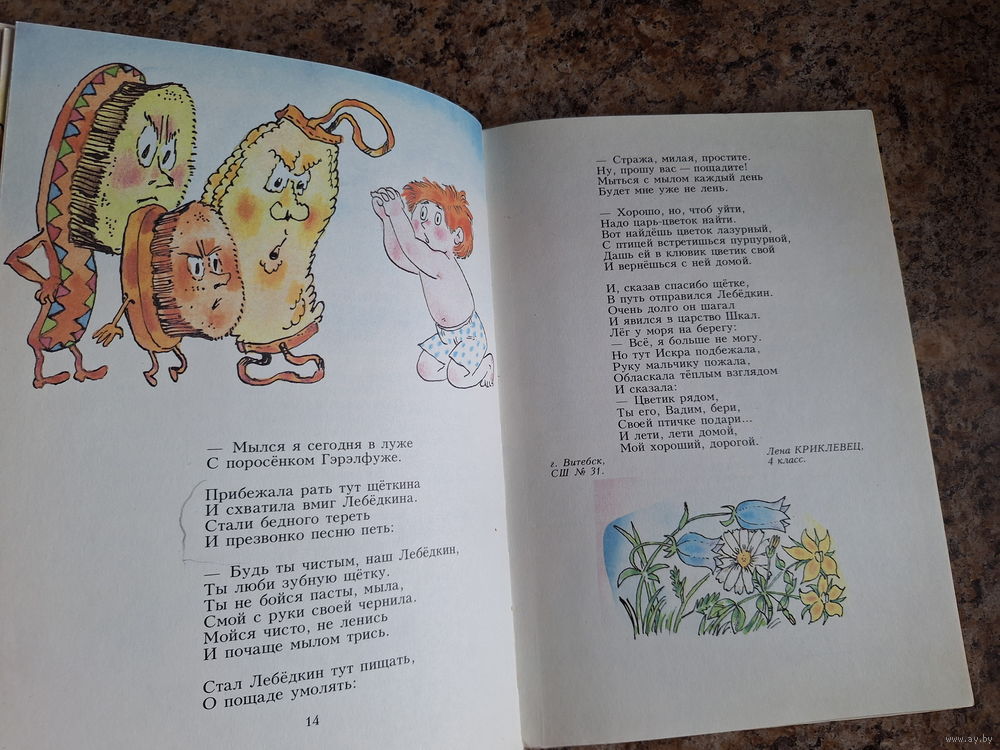 — Мылся я сегодня в луже
С поросёнком Гэрэлфуже.
Прибежала рать тут щёткина
И схватила вмиг Лебёдкина.
Стали бедного тереть
И презвонко песню петь:
— Будь ты чистым, наш Лебёдкин,
Ты люби зубную щётку.
Ты не бойся пасты, мыла,
Смой с руки своей чернила.
Мойся чисто, не ленись
И почаще мылом трись.
Стал Лебёдкин тут пищать,
О пощаде умолять:
14
— Стража, милая, простите.
Ну, прошу вас — пощадите!
Мыться с мылом каждый день
Будет мне уже не лень.
— Хорошо, но, чтоб уйти,
Надо царь-цветок найти.
Вот найдёшь цветок лазурный,
С птицей встретишься пурпурной,
Дашь ей в клювик цветик свой
И вернёшься с ней домой.
И, сказав спасибо щётке,
В путь отправился Лебёдкин.
Очень долго он шагал
И явился в царство Шкал.
Лёг у моря на берегу:
— Всё, я больше не могу.
Но тут Искра подбежала,
Руку мальчику пожала,
Обласкала тёплым взглядом
И сказала:
— Цветик рядом,
Ты его, Вадим, бери,
Своей птичке подари...
И лети, лети домой,
Мой хороший, дорогой.
Лена КРИКЛЕВЕЦ,
4 класс.
г. Витебск,
СШ № 31.
www.ay.by